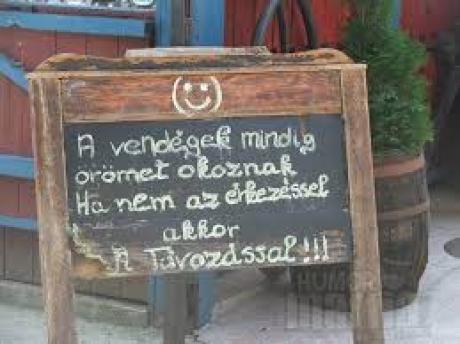 A vendégek mindig
örömet okoznak
Ha nem az érkezéssel
akkor
A Távozással!!!
HUMOR